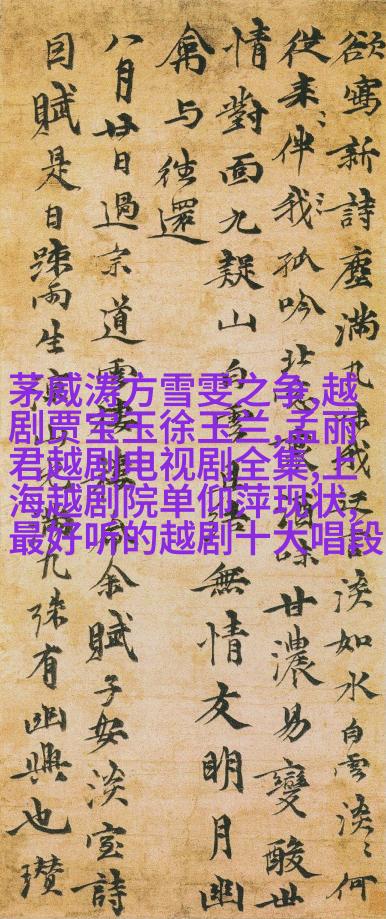 欲寫新詩塵滿淡如水白雲淡〻何
從来〻伴我〻孤吟北味甘濃易變酸世
情對面九疑山白雲無情友明月幽
禽与往還
八月廿日過宗道余賦子安淡室詩
目賦是日踈雨生九殊有幽興也瓚
茅威涛方雪雯之争,越
剧贾宝玉徐玉兰,孟丽
君越剧电视剧全集,上
海越剧院单仰萍现状,
最好听的越剧十大唱段